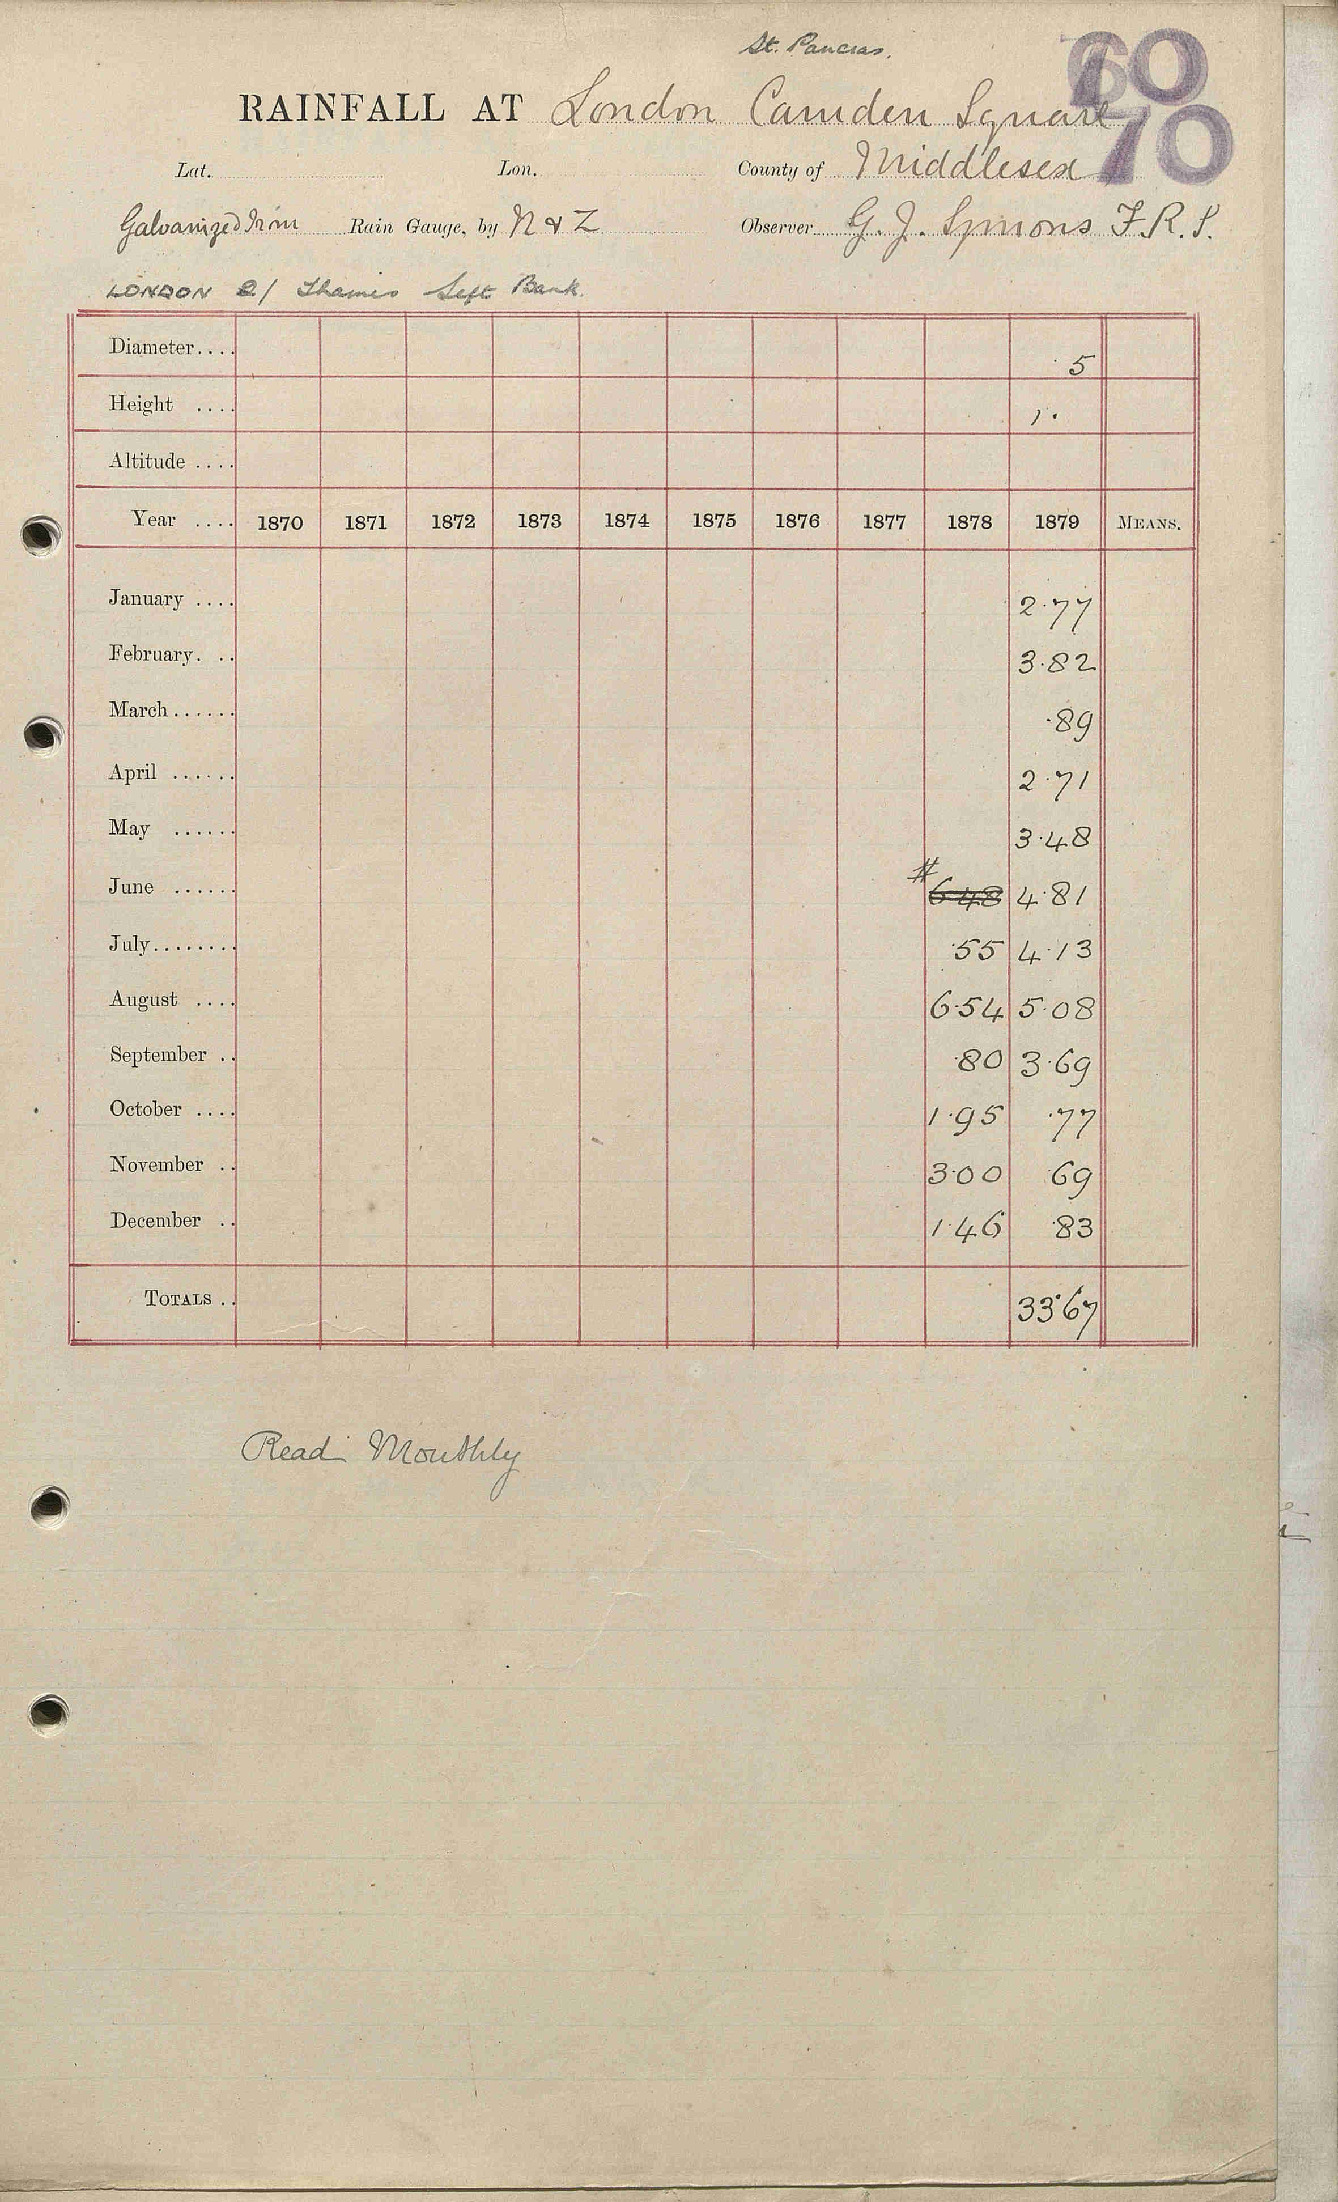 St. Pancras.
60
RAINFALL AT London Camden Square
70
Lat. Lon. County of Middlesex
Galvanized Iron Rain Gauge, by N & Z Observer G. J. Symons F.R.S.
LONDON 2/ Thames Left Bank.
Diameter.... 5
Height .... 1.
Altitude ....
Year .... 1870 1871 1872 1873 1874 1875 1876 1877 1878 1879 MEANS.
January .... 2.77
February. .. 3.82
March...... .89
April ...... 2.71
May ...... 3.48
June ...... # 6.48 4.81
July........ .55 4.13
August .... 6.54 5.08
September .. .80 3.69
October .... 1.95 .77
November .. 3.00 69
December .. 1.46 .83
TOTALS .. 33.67
Read Monthly